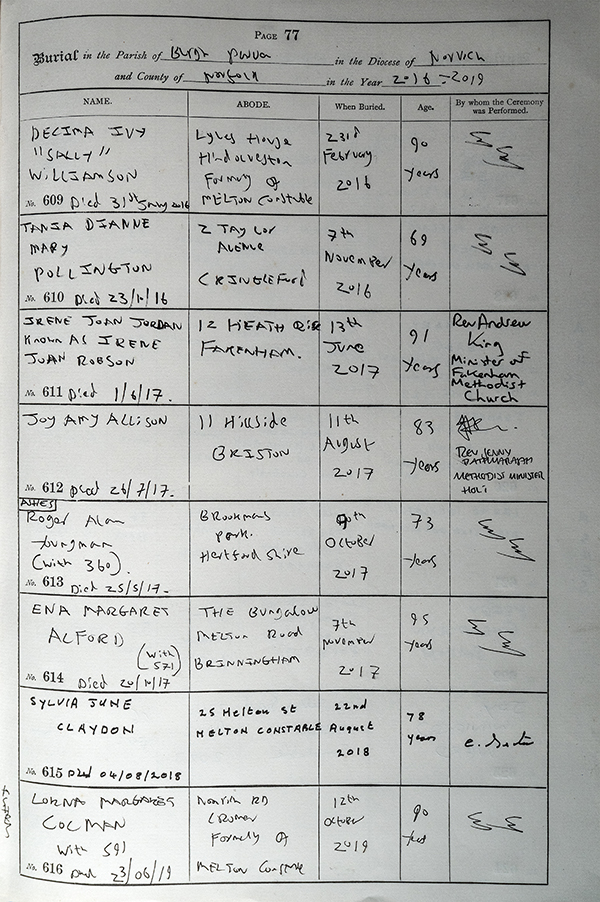 PAGE 77
Burial in the Parish of Burgh Parva in the Diocese of Norwich
and County of Norfolk in the Year 2016-2019
NAME. ABODE. When Buried. Age. By whom the Ceremony was Performed.
DECIMA IVY
"SALLY"
WILLIAMSON
No. 609 Died 31st 2016
Hindolveston
Formerly of
MELTON Constable
23rd
February
2016
90
Years
TANIA DIANNE
MARY
POLLINGTON
No. 610 Died 23/10/16
2 TAYLOR
AVENUE
CRINGLEFORD
7th
November
2016
69
Years
IRENE JOAN JORDAN
Known AS IRENE
JOAN ROBSON
No. 611 Died 1/6/17.
12 HEATH RISE
FAKENHAM.
13th
June
2017
91
Years
Rev Andrew
King
Minister of
Fakenham
Methodist
Church
JOY AMY ALLISON
No. 612 Died 26/7/17.
11 Hillside
BRISTON
11th
August
2017
83
Years
REV JENNY
METHODIST MINISTER
HOLT
ASHES
Roger Alan
Youngman
(with 360).
No. 613 Died 25/5/17.
Brookmans
Park.
Hertfordshire
October
2017
73
Years
ENA MARGARET
ALFORD
(with 571)
No. 614 Died 20/10/17
THE Bungalow
MELTON Road
BRINNINGHAM
7th
November
2017
95
Years
SYLVIA JUNE
CLAYDON
No. 615 Died 04/08/2018
25 Melton St
MELTON CONSTABLE
22nd
August
2018
78
Years
LORNA MARGARET
COLMAN
With 591
No. 616 Died 23/06/19
Norwich RD
CROMER
Formerly Of
MELTON Constable
12th
October
2019
90
Years